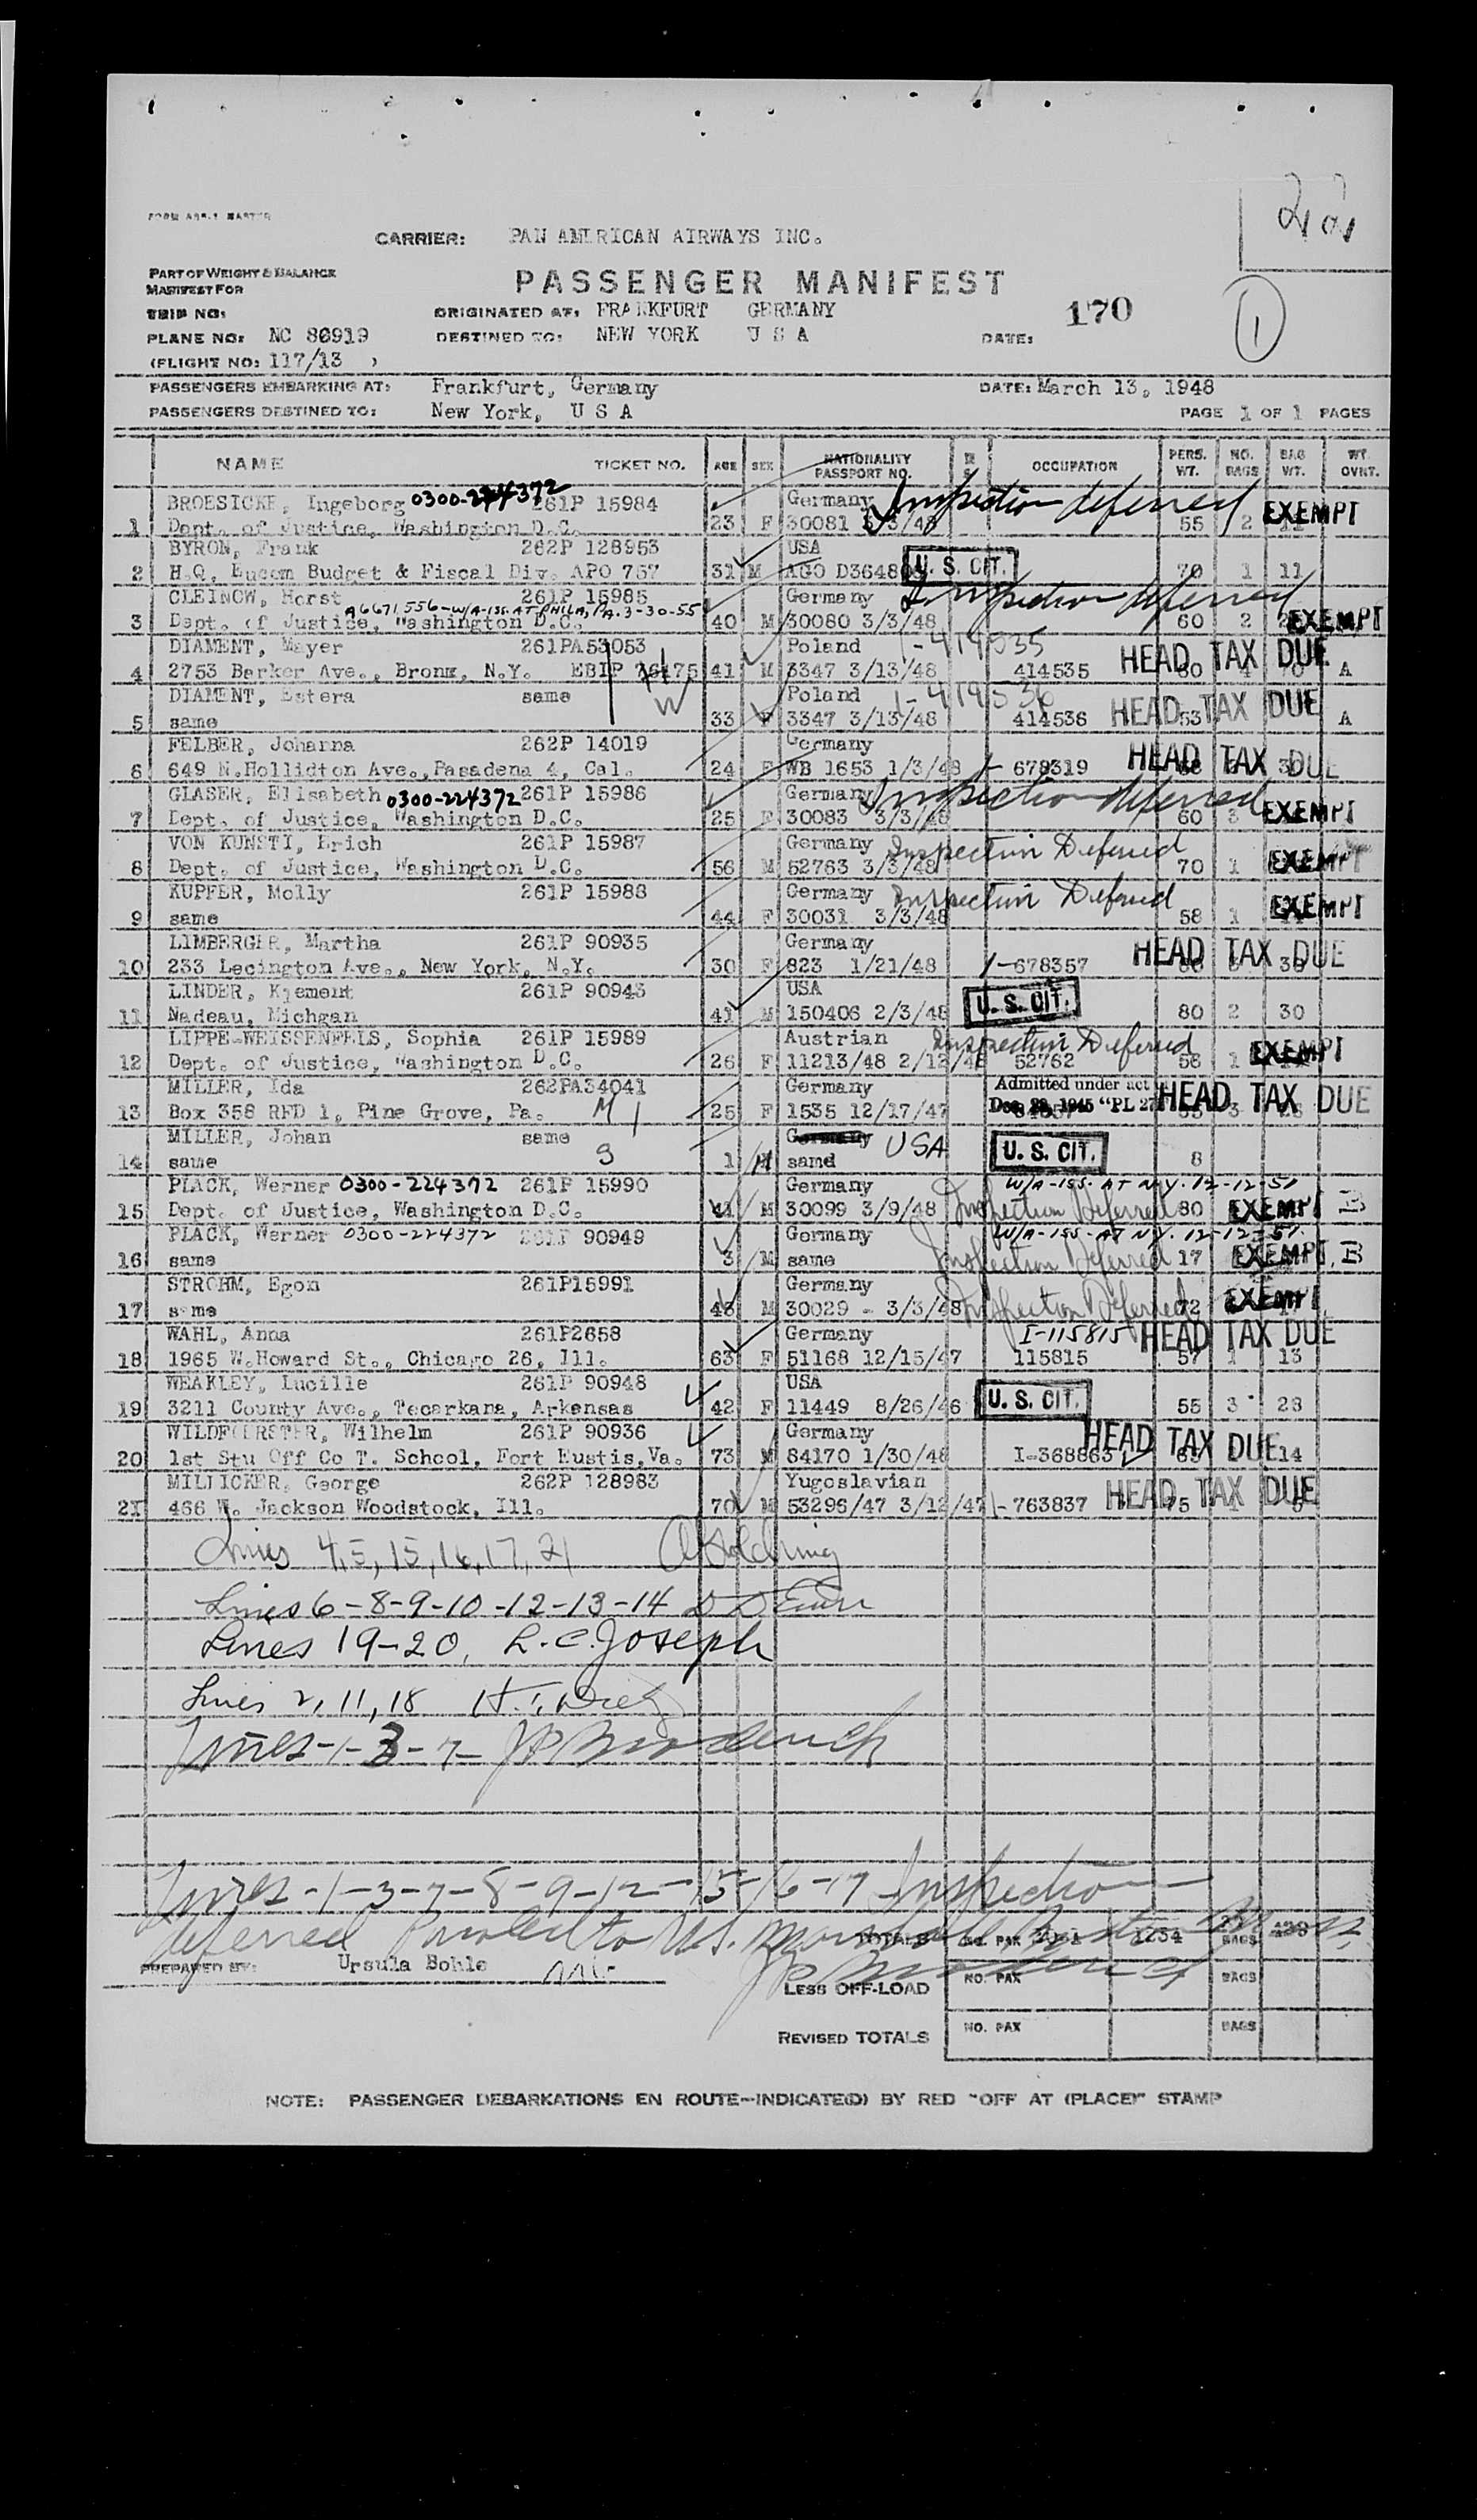 FORM MASTER
CARRIER: PAN AMERICAN AIRWAYS INC.
PART OF WEIGHT & BALANCE
MANIFEST FOR
PASSENGER MANIFEST
TRIP NO: ORIGINATED AT: FRANKFURT GERMANY 170
PLANE NO: NC 86919 DESTINED TO: NEW YORK U S A DATE: 1
(FLIGHT NO: 117/13 )
PASSENGERS EMBARKING AT: Frankfurt, Germany DATE: March 13, 1948
PASSENGERS DESTINED TO: New York, U S A PAGE 1 OF 1 PAGES
NAME TICKET NO. AGE SEX NATIONALITY PASSPORT NO. OCCUPATION PERS. WT. NO. BAGS BAG WT. WT. OVNT.
BROESICKE, Ingeborg 0300-224372 261P 15984 Germany Inspection deferred EXEMPT
1 Dept. of Justice, Washington D.C. 23 F 30081 3/3/48 55 2
BYRON, Frank 262P 128953 USA U. S. CIT.
2 H.Q, Eucom Budget & Fiscal Div. APO 757 31 M AGO D3648 70 1 11
CLEINOW, Horst 261P 15985 Germany Inspection deferred
A6671556-W/A-ISS. AT PHILA, PA. 3-30-55
3 Dept. of Justice, Washington D.C. 40 M 30080 3/3/48 60 2 EXEMPT
DIAMENT, Mayer 261PA53053 Poland HEAD TAX DUE
4 2753 Barker Ave., Bronx, N.Y. 41 M 3347 3/13/48 414535 A
DIAMENT, Estera same W Poland I-414536 HEAD TAX DUE
5 same 33 F 3347 3/13/48 414536 53 A
FELBER, Johanna 262P 14019 Germany HEAD TAX DUE
6 649 N.Hollidton Ave.,Pasadena 4, Cal. 24 F WB 1653 1/3/48 I- 678319
GLASER, Elisabeth 0300-224372 261P 15986 Germany Inspection deferred EXEMPT
7 Dept. of Justice, Washington D.C. 25 F 30083 3/3/48 60 3
VON KUNSTI, Erich 261P 15987 Germany Inspection Deferred
8 Dept. of Justice, Washington D.C. 56 M 52763 3/3/48 70 1 EXEMPT
KUPFER, Molly 261P 15988 Germany Inspection Deferred
9 same 44 F 30031 3/3/48 58 1 EXEMPT
LIMBERGER, Martha 261P 90935 Germany HEAD TAX DUE
10 233 Lecington Ave., New York, N.Y. 30 F 823 1/21/48 I-678357
LINDER, Klement 261P 90943 USA U. S. CIT.
11 Nadeau, Michgan 41 M 150406 2/3/48 80 2 30
LIPPE-WEISSENFELS, Sophia 261P 15989 Austrian Inspection Deferred EXEMPT
12 Dept. of Justice, Washington D.C. 26 F 11213/48 2/12/48 52762 56 1
MILLER, Ida 262PA34041 Germany Admitted under act HEAD TAX DUE
13 Box 358 RFD 1, Pine Grove, Pa. M 1 25 F 1535 12/17/47 Dec. 28, 1945 "PL 27
MILLER, Johan same Germany USA U. S. CIT.
14 same S 1 M same 8
PLACK, Werner 0300-224372 261P 15990 Germany W/A-ISS. AT N.Y. 12-12-51
15 Dept. of Justice, Washington D.C. 41 M 30099 3/9/48 Inspection Deferred 80 EXEMPT B
PLACK, Werner 0300-224372 261P 90949 Germany W/A-ISS-AT NY. 12-12-51.
16 same 3 M same Inspection Deferred 17 EXEMPT. B
STROHM, Egon 261P15991 Germany
17 same 48 M 30029 - 3/3/48 Inspection Deferred 72 EXEMPT
WAHL, Anna 261P2658 Germany I-115815 HEAD TAX DUE
18 1965 W.Howard St., Chicago 26, Ill. 63 F 51168 12/15/47 115815 57 1 13
WEAKLEY, Lucille 261P 90948 USA U. S. CIT.
19 3211 County Ave., Tecarkana, Arkansas 42 F 11449 8/26/46 55 3 28
WILDFOERSTER, Wilhelm 261P 90936 Germany HEAD TAX DUE
20 1st Stu Off Co T. School, Fort Eustis,Va. 73 M 84170 1/30/48 I-368863 14
MILLICKER, George 262P 128983 Yugoslavian
21 466 W. Jackson Woodstock, Ill. 70 M 53296/47 3/12/47 I- 763837 HEAD TAX DUE 75
Lines 4,5,15,16,17,21
Lines 6-8-9-10-12-13-14
Lines 19-20, L.C. Joseph
Lines 2, 11, 18
Lines-1-3-7-
Lines-1-3-7-8-9-12-15-16-17 Inspection
deferred Paroled to U.S.
TOTALS NO. PAX 1234 BAGS
PREPARED BY: Ursula Bohle
LESS OFF-LOAD NO. PAX BAGS
REVISED TOTALS NO. PAX BAGS
NOTE: PASSENGER DEBARKATIONS EN ROUTE—INDICATE(D) BY RED "OFF AT (PLACE)" STAMP